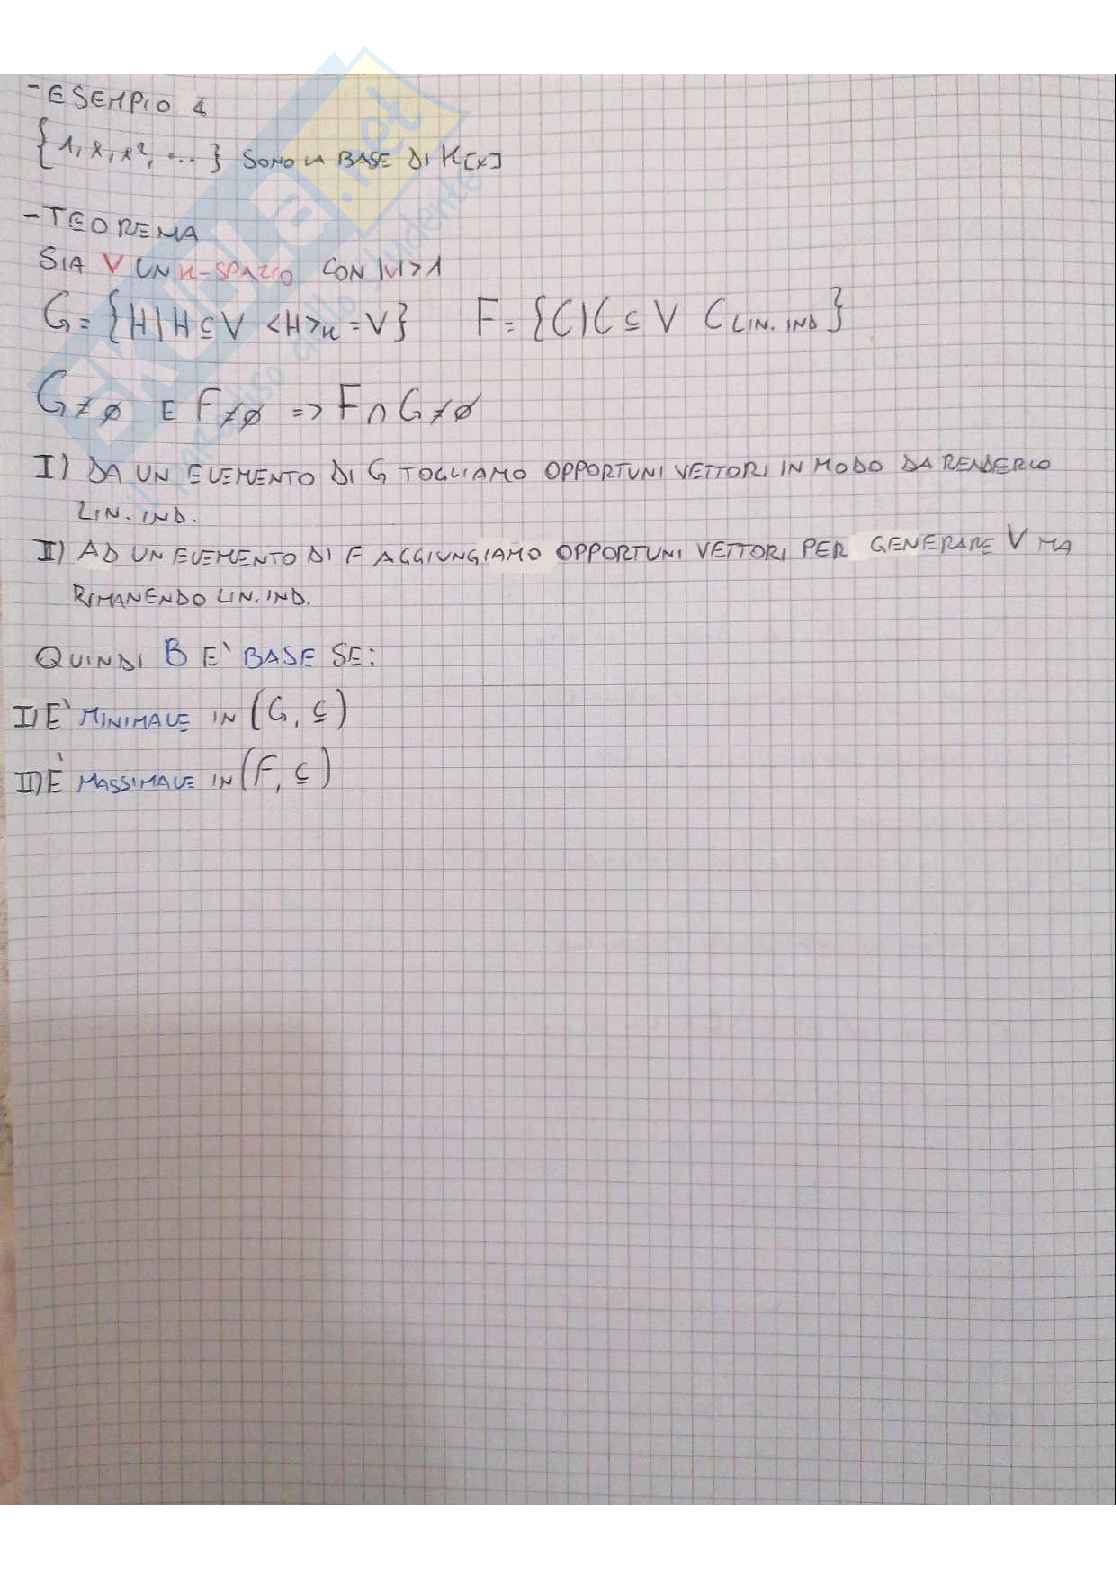 - ESEMPIO 4
{1, x, x², ...} SONO LA BASE DI K[x]
- TEOREMA
SIA V UN K-SPAZIO CON |V|>1
G={H|H⊆V <H>ₖ=V} F={C|C⊆V C LIN. IND}
G≠ø E F≠ø => F∩G≠ø
I) DA UN ELEMENTO DI G TOGLIAMO OPPORTUNI VETTORI IN MODO DA RENDERLO
LIN. IND.
II) AD UN ELEMENTO DI F AGGIUNGIAMO OPPORTUNI VETTORI PER GENERARE V MA
RIMANENDO LIN. IND.
QUINDI B E` BASE SE:
I) E` MINIMALE IN (G, ⊆)
II) E` MASSIMALE IN (F, ⊆)